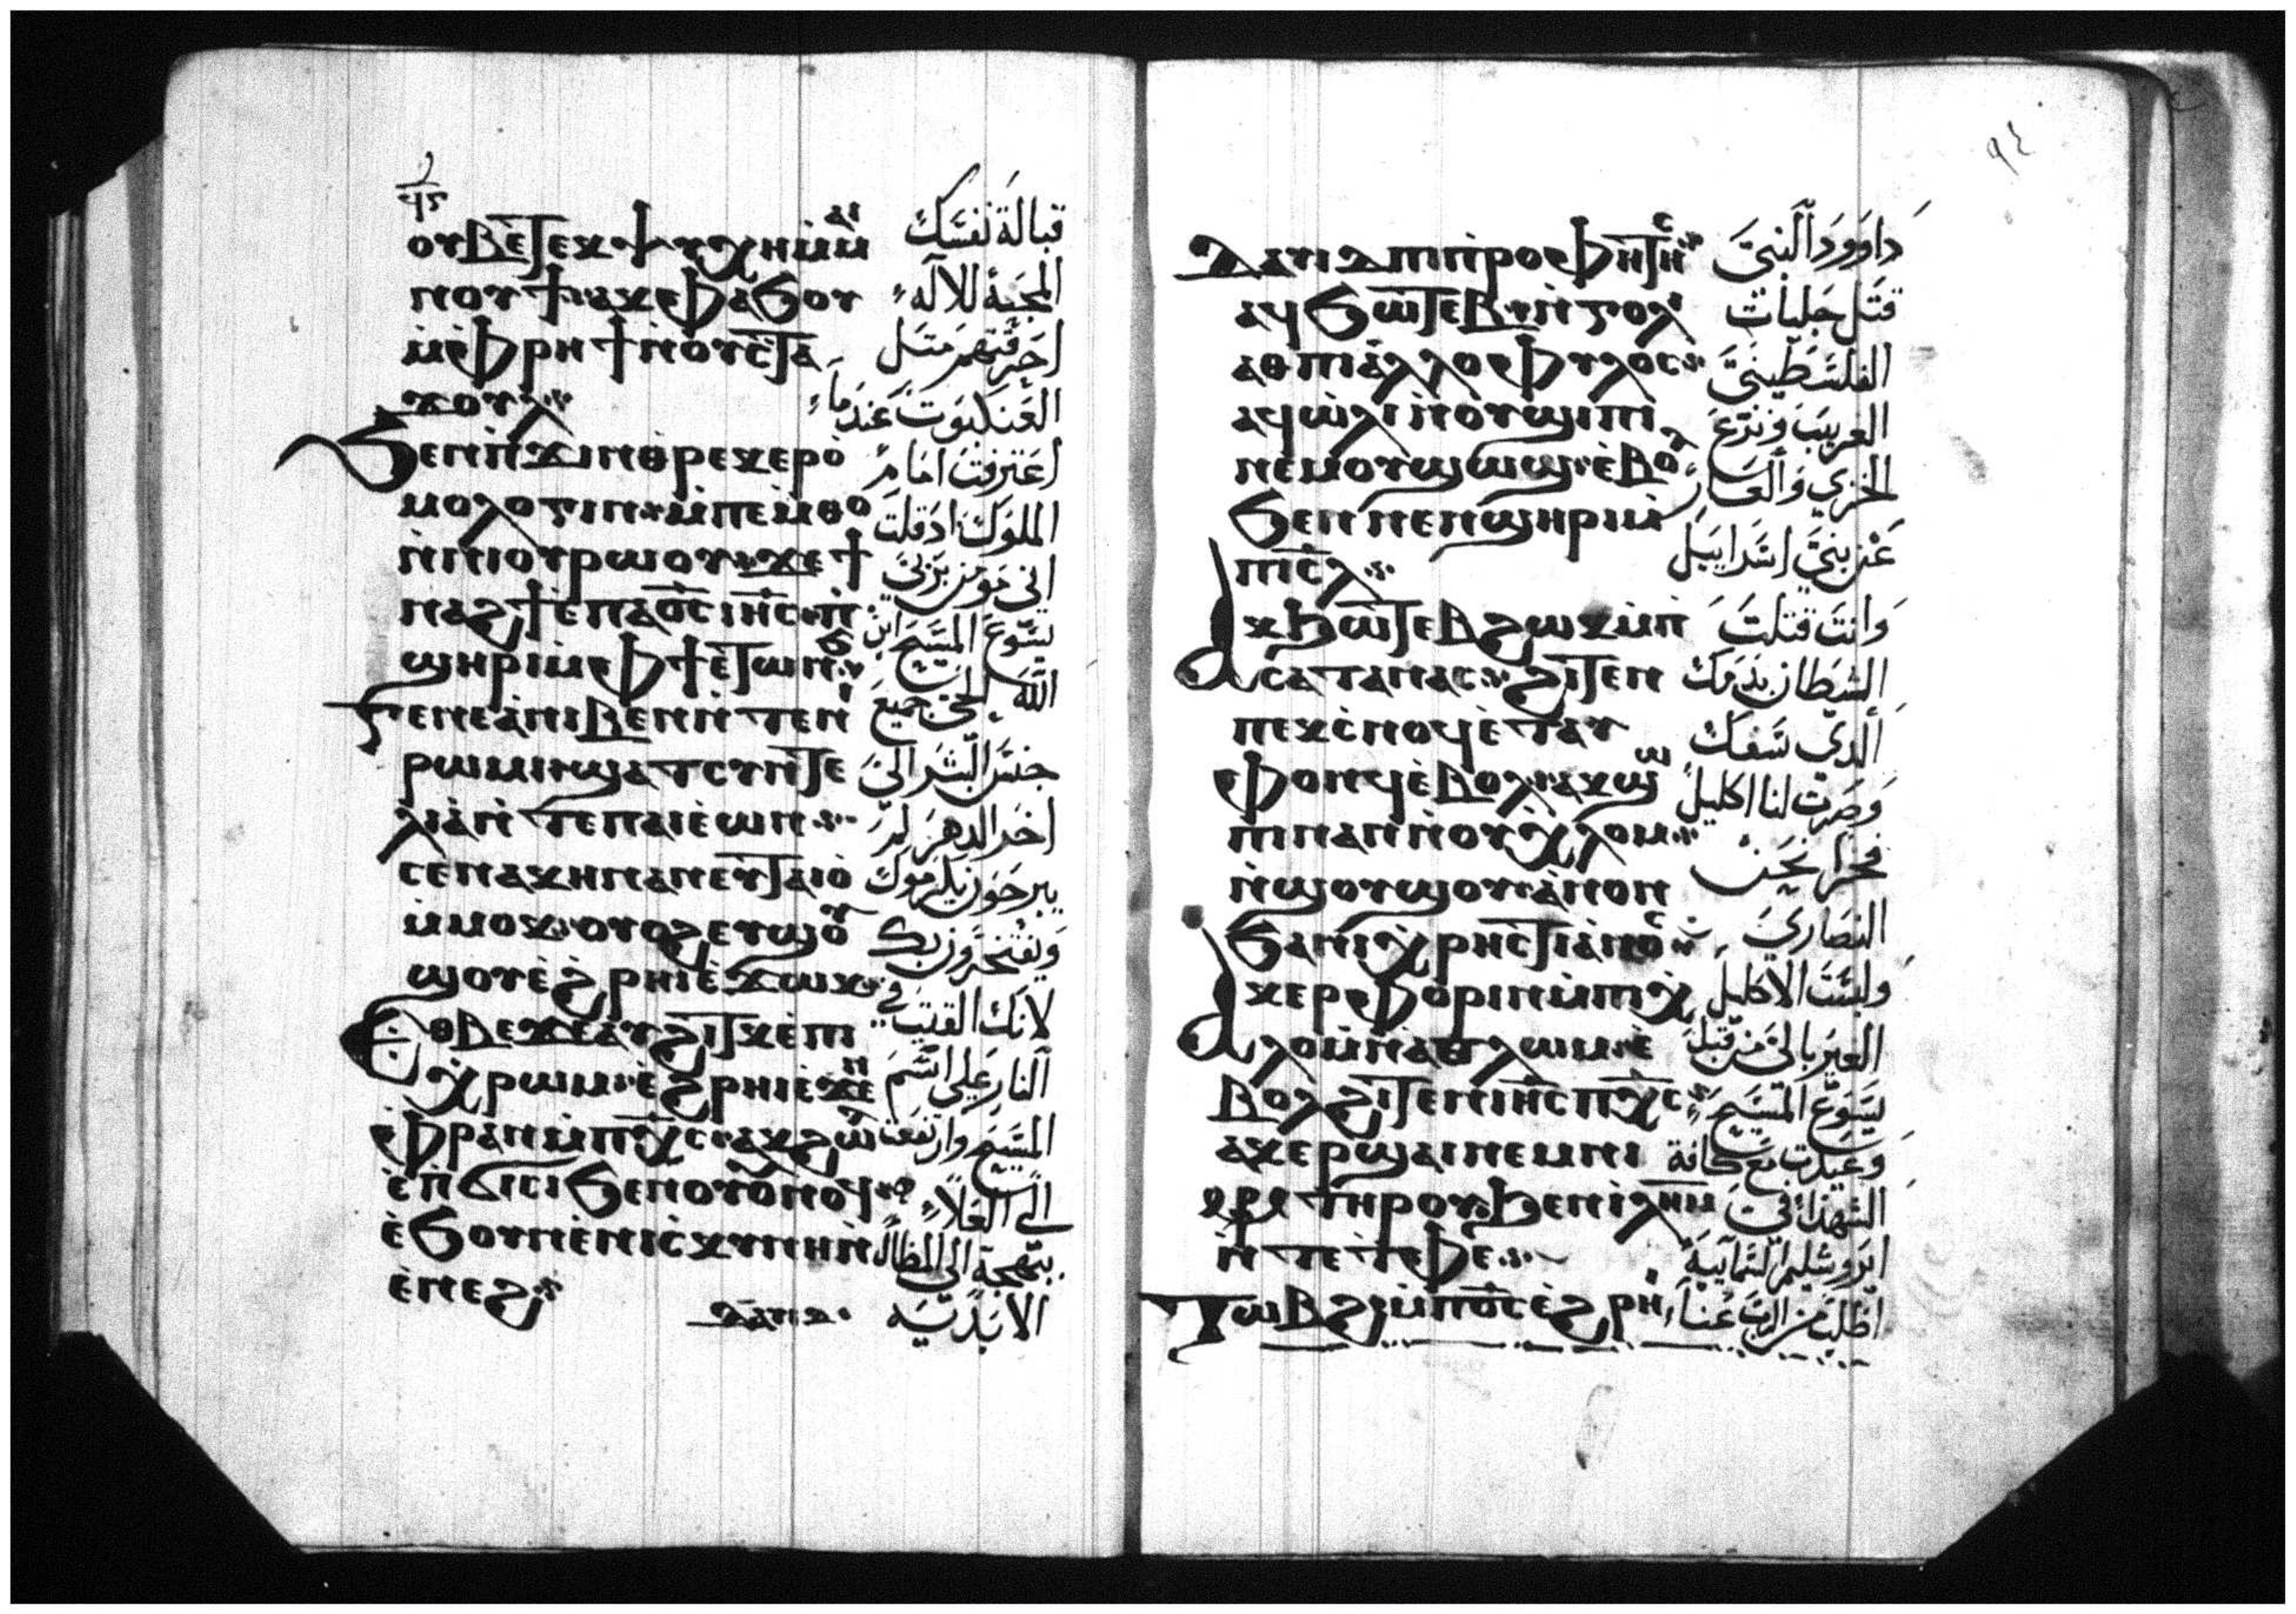 ⲟⲩⲃⲉ ⲧⲉⲕⲯⲩⲭⲏ ⲙ̀ⲙⲁⲓ
ⲛⲟⲩϯ ⲁⲕⲫⲁϧⲟⲩ
ⲙ̀ⲫⲣⲏϯ ⲛ̀ⲟⲩⲥ̀ⲧⲁ
ϫⲟⲩⲗ
ϧⲉⲛ ⲡ̀ϫⲓⲛⲑⲣⲉⲕⲉⲣⲟ̀
ⲙⲟⲗⲟⲅⲓⲛ ⲙ̀ⲡⲉⲙ̀ⲑⲟ
ⲛ̀ⲛⲓⲟⲩⲣⲱⲟⲩ ϫⲉ ϯ
ⲛⲁϩϯ ⲉ̀ⲡⲁⲟ̅ⲥ̅ ⲓⲏ̅ⲥ̅ ⲡ̀
ϣⲏⲣⲓ ⲙ̀ⲫϯ ⲉⲧⲱⲛϧ
ⲅⲉⲛⲉⲁ̀ ⲛⲓⲃⲉⲛ ⲛ̀ⲧⲉ ⲛⲓ
ⲣⲱⲙⲓ ϣⲁ ⲧⲥⲩⲛⲧⲉ
ⲗⲓⲁ̀ ⲛ̀ⲧⲉ ⲡⲁⲓⲉ̀ⲱⲛ
ⲥⲉⲛⲁⲭⲏ ⲛⲁⲛ ⲉⲩⲧⲁⲓⲟ̀
ⲙ̀ⲙⲟⲕ ⲟⲩⲟϩ ⲉⲩϣⲟⲩ
ϣⲟⲩ ⲉ̀ϩⲣⲏⲓ ⲉ̀ϫⲱⲕ
ⲉⲑⲃⲉ ϫⲉ ⲁⲩϩⲓⲧⲕ ⲉ̀ⲡⲓ
ⲭⲣⲱⲙ ⲉ̀ϩⲣⲏⲓ ⲉ̀ϫⲉⲛ
ⲫⲣⲁⲛ ⲙ̀ⲡⲭ̅ⲥ̅ ⲁⲕϩⲱⲗ
ⲉ̀ⲡ̀ϭⲓⲥⲓ ϧⲉⲛ ⲟⲩⲟⲩⲛⲟϥ
ⲉ̀ϧⲟⲩⲛ ⲉ̀ⲛⲓⲥⲕⲩⲛⲏ ⲛ̀
ⲉ̀ⲛⲉϩ
ⲇⲁⲩⲓⲇ
قبالة نفسك
المحبة للاله
احرقتهم مثل
العنكبوت عندما
اعترفت امام
الملوك اذ قلت
اني مومن بربي
يسوع المسيح ابن
الله الحي جميع
جنس البشر الى
اخر الدهر
يكرموك
ويفتخرون بك
لانك القيت في
النار على اسم
المسيح وارتفعت
الى العلا
ببهجة الى المظال
الابدية
ⲇⲁⲩⲓⲇ ⲡⲓⲡⲣⲟⲫⲏⲧⲏⲥ
ⲁϥϧⲱⲧⲉⲃ ⲛ̀ⲅⲟⲗⲓ
ⲁⲑ ⲡⲓⲁ̀ⲗⲗⲟⲫⲩⲗⲟⲥ
ⲁϥⲱ̀ⲗⲓ ⲛ̀ⲟⲩϣⲓⲡⲓ
ⲛⲉⲙ ⲟⲩϣⲱϣ ⲉ̀ⲃⲟⲗ
ϧⲉⲛ ⲛⲉⲛϣⲏⲣⲓ ⲙ̀
ⲡⲓⲥ̅ⲗ̅
ⲁⲕϧⲱⲧⲉⲃ ϩⲱⲕ ⲙ̀ⲡ
ⲥⲁⲧⲁⲛⲁⲥ ϩⲓⲧⲉⲛ
ⲡⲉⲕⲥ̀ⲛⲟϥ ⲉ̀ⲧⲁⲩ
ⲫⲟⲛϥ ⲉ̀ⲃⲟⲗ ⲁⲕϣⲱ
ⲡⲓ ⲛⲁⲛ ⲛ̀ⲟⲩⲭⲗⲟⲙ
ⲛ̀ϣⲟⲩϣⲟⲩ ⲁ̀ⲛⲟⲛ
ϧⲁ ⲛⲓⲭⲣⲏⲥⲧⲓⲁⲛⲟⲥ
ⲁⲕⲉⲣⲫⲟⲣⲓⲛ ⲙ̀ⲡⲓⲭ
ⲗⲟⲙ ⲛ̀ⲁⲑⲗⲱⲙ ⲉ̀
ⲃⲟⲗ ϩⲓⲧⲉⲛ ⲓⲏ̅ⲥ̅ ⲡⲭ̅ⲥ̅
ⲁⲕⲉⲣϣⲁⲓ ⲛⲉⲙ ⲛⲓ
ⲙ̅ⲣ̅ⲥ̅ ⲧⲏⲣⲟⲩ ϧⲉⲛ ⲓⲗ̅ⲏ̅ⲙ̅
ⲛ̀ⲧⲉ ⲧ̀ⲫⲉ
ⲧⲱⲃϩ ⲙ̀ⲡⲟ̅ⲥ̅ ⲉ̀ϩⲣⲏⲓ
داوود النبي
قتل جليات
الفلسطيني
الغريب ونزع
الخزي والعار
عن بني اسراييل
وانت قتلت
الشيطان بدمك
الذي سفك
وصرت لنا اكليل
فخرا نحن
النصارى
ولبست الاكليل
الغير بالي من قبل
يسوع المسيح
وعيدت مع كافة
الشهدا في
ايروشليم السماييه
اطلب من الرب عنا
٩٤